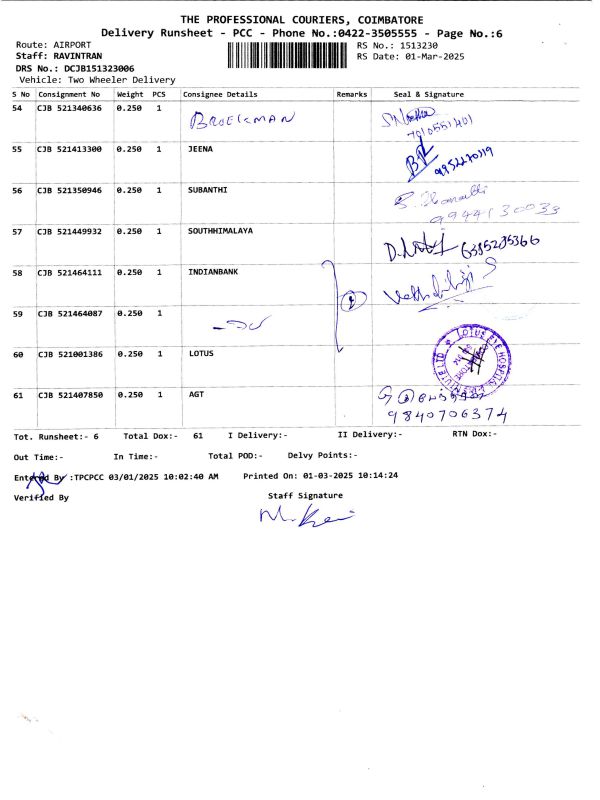 THE PROFESSIONAL COURIERS, COIMBATORE
Delivery Runsheet - PCC - Phone No.:0422-3505555 - Page No.:6
Route: AIRPORT RS No.: 1513230
Staff: RAVINTRAN RS Date: 01-Mar-2025
DRS No.: DCJB151323006
Vehicle: Two Wheeler Delivery
S No Consignment No Weight PCS Consignee Details Remarks Seal & Signature
54 CJB 521340636 0.250 1 BROEKMAN
55 CJB 521413300 0.250 1 JEENA
56 CJB 521350946 0.250 1 SUBANTHI
9944130033
57 CJB 521449932 0.250 1 SOUTHHIMALAYA 6385205366
58 CJB 521464111 0.250 1 INDIANBANK
59 CJB 521464087 0.250 1
60 CJB 521001386 0.250 1 LOTUS LOTUS EYE HOSPITAL
61 CJB 521407850 0.250 1 AGT
9840706374
Tot. Runsheet:- 6 Total Dox:- 61 I Delivery:- II Delivery:- RTN Dox:-
Out Time:- In Time:- Total POD:- Delvy Points:-
Entered By :TPCPCC 03/01/2025 10:02:40 AM Printed On: 01-03-2025 10:14:24
Verified By Staff Signature